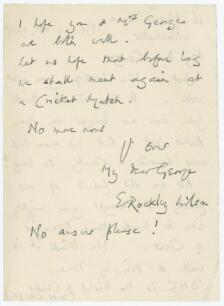 I hope you & Mrs George
are both well.
Let us hope that before long
we shall meet again at
a Cricket Match.
No more now
Yr Ever
My dear George
E Rockley Wilson
No answer please!